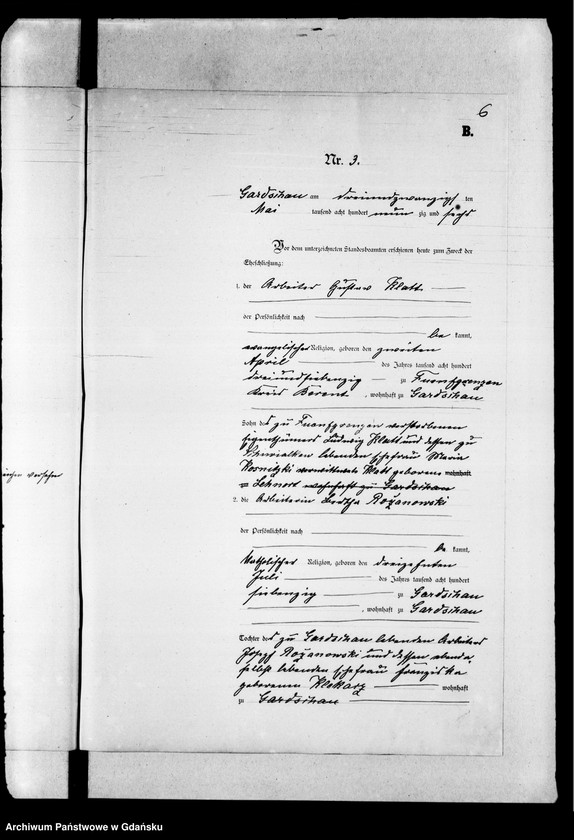 6
B.
Nr. 3.
Gardschau am dreiundzwanzigsten
Mai tausend acht hundert neunzig und sechs
Vor dem unterzeichneten Standesbeamten erschienen heute zum Zweck der
Eheschließung:
1. der Arbeiter Gustav Klatt
der Persönlichkeit nach
be kannt,
evangelischer Religion, geboren den zweiten
April des Jahres tausend acht hundert
dreiundsiebenzig zu
Kreis Berent, wohnhaft zu Gardschau
Sohn des zu verstorbenen
Eigenthümers Ludwig Klatt und dessen zu
lebenden Ehefrau Maria
verwittwete Klatt geborene wohnhaft
wohnhaft zu Gardschau
2. die Arbeiterin Bertha Rożanowski
der Persönlichkeit nach
be kannt,
katholischer Religion, geboren den dreizehnten
Juli des Jahres tausend acht hundert
siebenzig zu Gardschau
, wohnhaft zu Gardschau
Tochter des zu Gardschau lebenden Arbeiters
Josef Rożanowski und dessen ebenda
selbst lebenden Ehefrau Franziska
geborenen wohnhaft
zu Gardschau
Archiwum Państwowe w Gdańsku